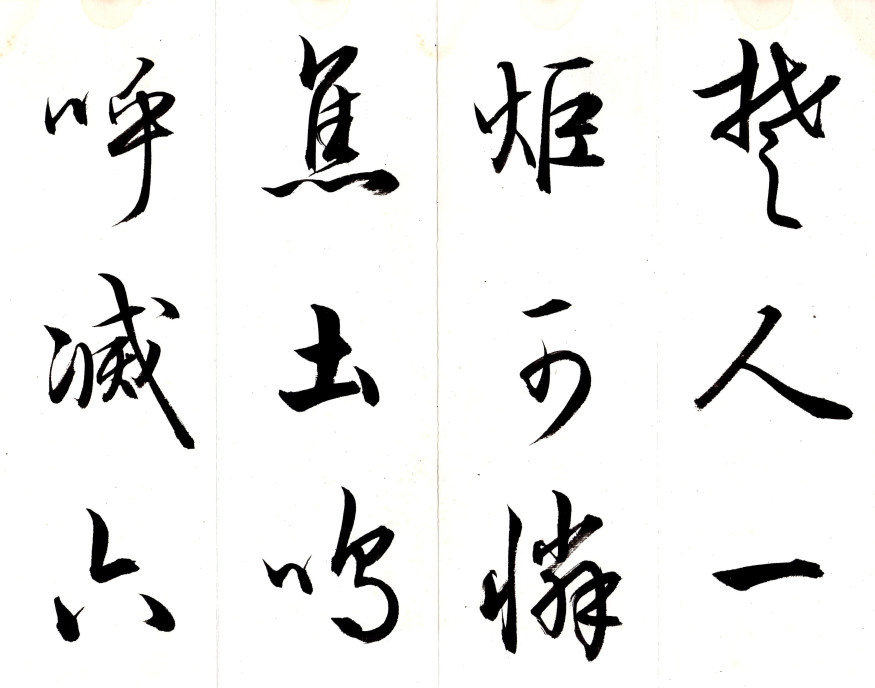 楚人一
炬可憐
焦土鳴
呼滅六